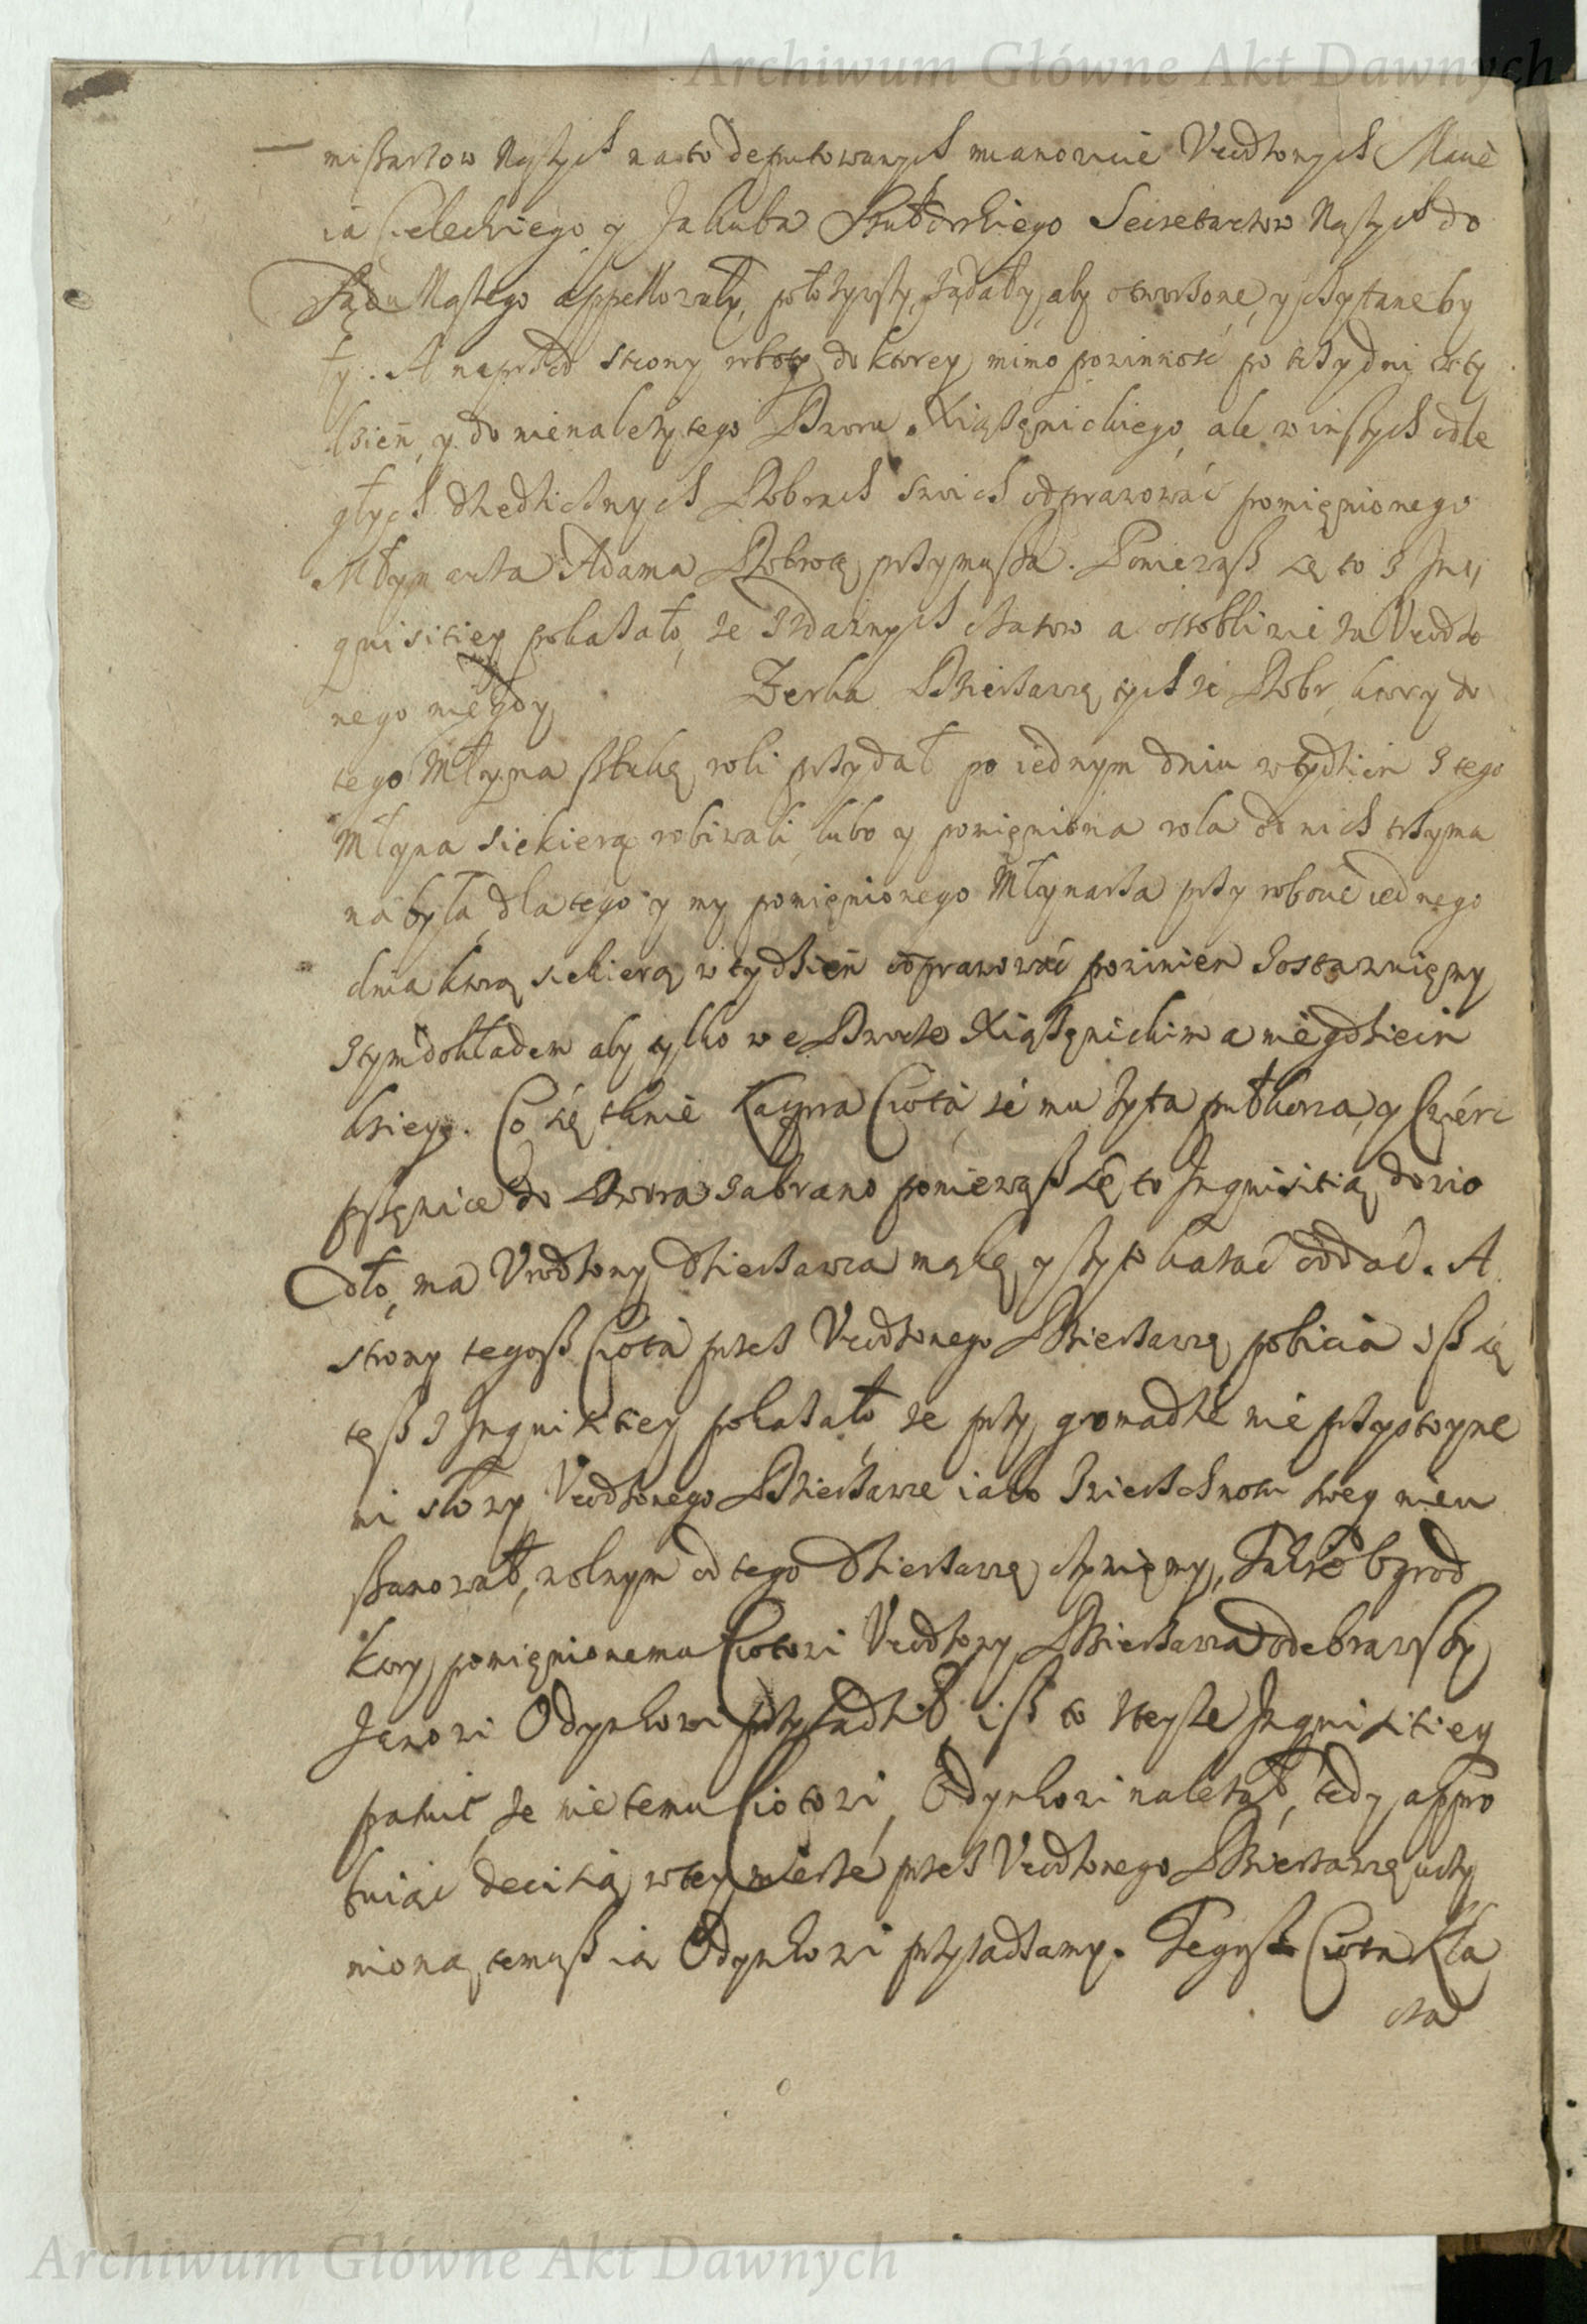 Archiwum Główne Akt Dawnych
missarzow Naszych na to deputowanych mianowicie Vrodzonych Macie
ia Sielechiego y Jakuba Secretarzow Naszych do
Sądu Naszego appellowały, położywszy, żądały, aby otworzone, y czytane by
ły. A naprzod strony roboty do ktorey mimo powinność po trzy dni w ty
dzień, y do nienależytego Dworu Xiążęnickiego, ale w inszych odle
głych dziedzicznych Dobrach swoich odprawować pomienionego
Młynarza Adama Dobrotę przymusza. Ponieważ się to z Jn
quisitiey pokazało, że z dawnych czasow a osobliwie za Vrodzo
nego niegdy Zerka Dzierzawcę tychże Dobr, ktory do
tego Młyna sztukę roli przydał po iednym dniu w tydzień z tego
Młyna siekierą robiwali, lubo y pomieniona rola od nich trzyma
na była, dla tego y my pomienionego Młynarza przy robocie iednego
dnia ktorą siekierą w tydzień odprawować powinien zostawuięmy
z tym dokładem aby tylko we Dworze Xiążęnickim a nie gdzie in
dziey. Co się tknie Kacpra Ciota, że mu żyta pułkorca, y Cwierć
pszęnice do Dwora zabrano ponieważ się to Jnquisitią dowio
dło, ma Vrodzony Dzierzawca mąkę y żyto kazać oddać. A
strony tegosz Ciota przez Vrodzonego Dzierzawcę pobicia isz się
tesz z Jnquisitiey pokazało, że przy gromadzie nie przystoyne
mi słowy Vrodzonego Dzierzawce iako zwierzchności swey nieu
szanował, wolnym od tego Dzierzawcę czynięmy. Także Ogrod
ktory pomienionemu Ciotowi Vrodzony Dzierzawca odebrawszy
Janowi Odynkowi przysądził, isz to z teyże Jnquisitiey
patuit, że nie temu Ciotowi, Odynkowi należał, tedy appro
buiąc decisią w tey mierze przez Vrodzonego Dzierzawcę uczy
nioną, temusz ią Odynkowi przysądzamy. Tegosz Ciota Kla
cza
Archiwum Główne Akt Dawnych